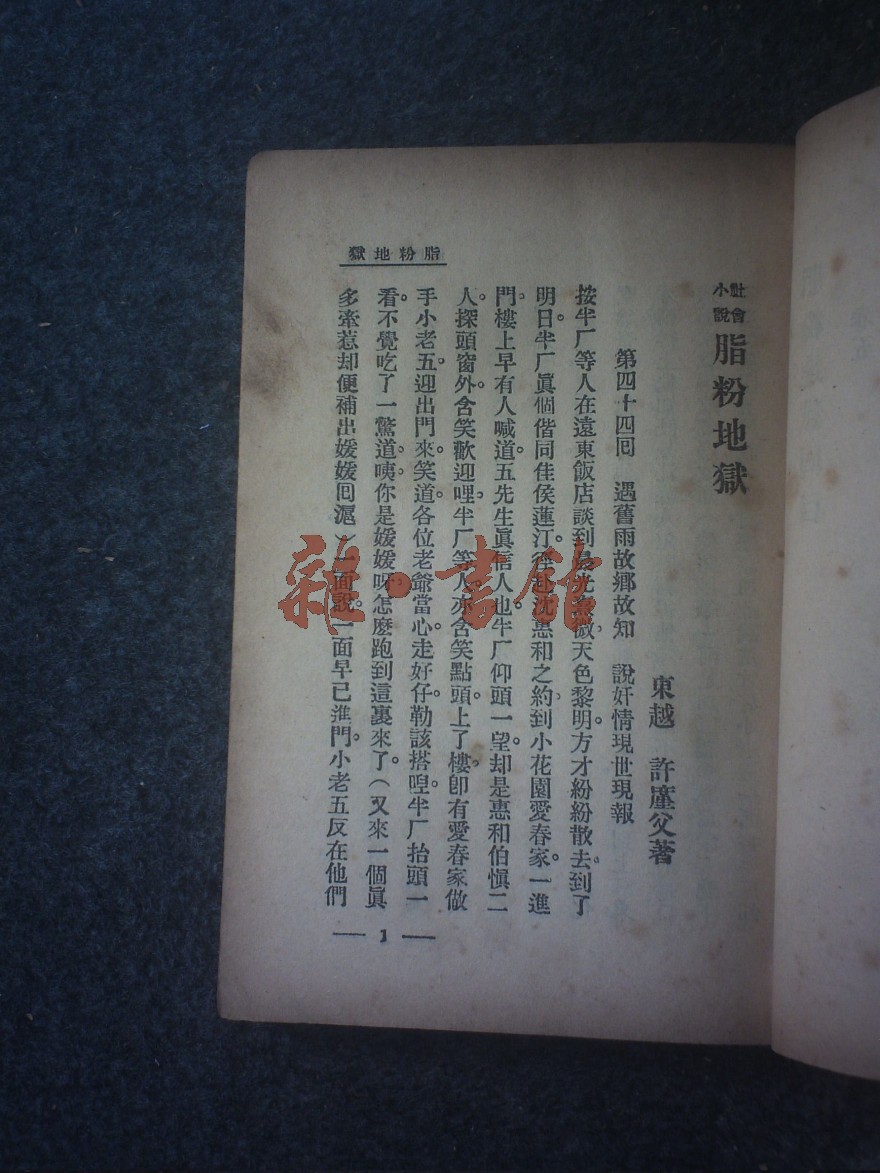 社會小說 脂粉地獄
東越 許廑父著
第四十四回 遇舊雨故鄉故知 說奸情現世現報
按半厂等人在遠東飯店談到晨光熹微天色黎明。方才紛紛散去。到了
明日。半厂眞個偕同佳侯蓮汀。徑赴沈惠和之約。到小花園愛春家。一進
門。樓上早有人喊道。五先生眞信人也。半厂仰頭一望。却是惠和伯愼二
人。探頭窗外。含笑歡迎哩。半厂等人亦含笑點頭。上了樓。卽有愛春家做
手小老五迎出門來。笑道。各位老爺當心。走好仔勒該搭嘡。半厂抬頭一
看。不覺吃了一驚道。咦。你是媛媛呀。怎麼跑到這裏來了。（又來一個眞
多牽惹却便補出媛媛回滬）一面說。一面早已進門。小老五反在他們
脂粉地獄
— 1 —
雜·書館